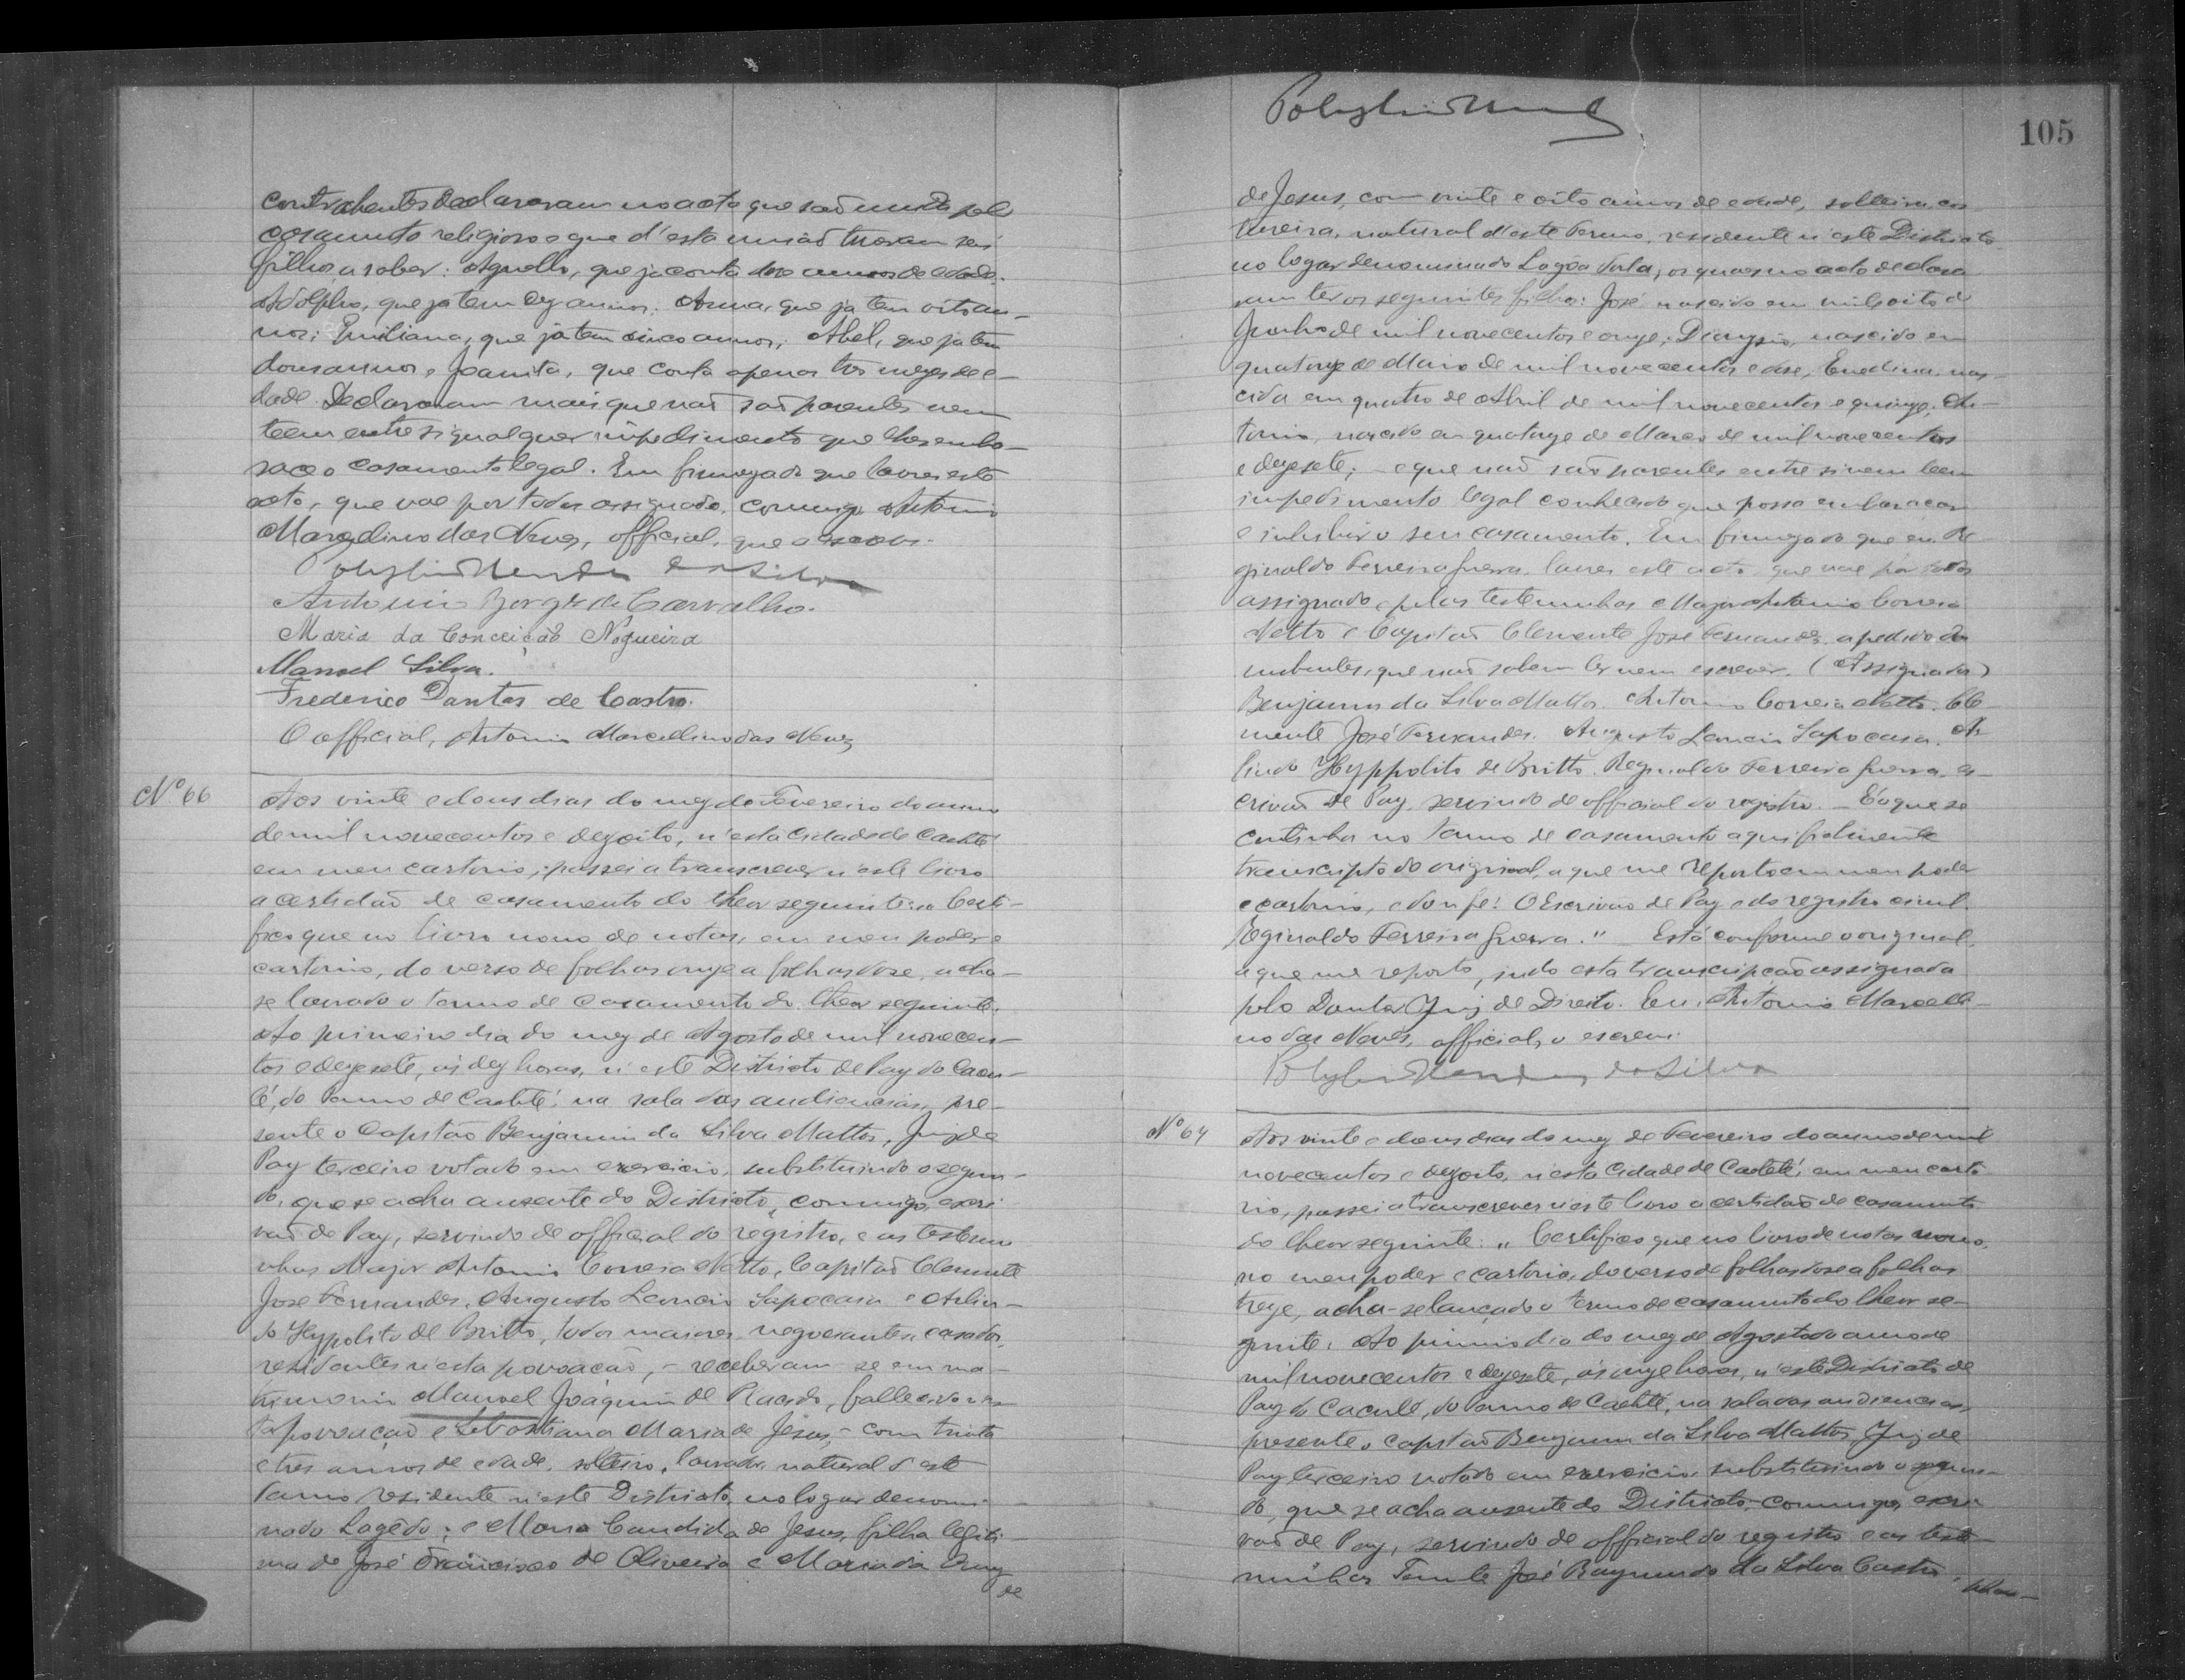 contrahentes declararam no acto que são unidos pelo
casamento religioso e que d'esta união tiveram seis
filhos a saber: Agnello, que já conta dose annos de edade;
Adolpho, que já tem dez annos; Anna, que já tem oito an-
nos; Emiliana, que já tem cinco annos; Abel, que já tem
dous annos e Joanita, que conta apenas tres mezes de e-
dade. Declararam mais que não são parentes nem
teem entre si qualquer impedimento que lhes emba-
race o casamento legal. Em firmeza do que lavrei este
acto, que vae por todos assignado, commigo Antonio
Marcellino das Neves, official, que o escrevi.
Polybio Mendes da Silva
Antonio Borges de Carvalho.
Maria da Conceição Nogueira
Manoel Silva.
Frederico Dantas de Castro.
O official, Antonio Marcellino das Neves
Nº 66
Aos vinte e dous dias do mez de Fevereiro do anno
de mil novecentos e dezoito, n'esta Cidade de Caeteté
em meu cartorio, passei a transcrever n'este livro
a certidão de casamento do theor seguinte: "Certi-
fico que no livro nono de notas, em meu poder e
cartorio, do verso de folhas onze a folhas dose, acha-
se lavrado o termo de casamento do theor seguinte:
Ao primeiro dia do mez de Agosto de mil novecen-
tos e dezesete, ás dez horas, n'este Districto de Paz do Cacu-
lé, do Termo de Caeteté, na sala das audiencias, pre-
sente o Capitão Benjamin da Silva Mattos, Juiz de
Paz terceiro votado em exercicio, substituindo o segun-
do, que se acha ausente do Districto, commigo, escri-
vão de Paz, servindo de official do registro, e as testemu-
nhas Major Antonio Correia Netto, Capitão Clemente
José Fernandes, Augusto Leoncio Sapocasa e Arlin-
do Hypolito de Britto, todos maiores, negociantes, casados,
residentes n'esta povoação, - receberam-se em ma-
trimonio Manoel Joaquim de Macedo, fallecido n'es-
ta povoação e Sebastiana Maria de Jesus, - com trinta
e tres annos de edade, solteiro, lavrador, natural d'este
Termo, residente n'este Districto, no logar denomi-
nado Lagêdo; e Maria Candida de Jesus, filha legiti-
ma de José Francisco de Oliveira e Maria da Cruz
de
Polybio Mendes
105
de Jesus, com vinte e oito annos de edade, solteira, cos-
tureira, natural d'este Termo, residente n'este Districto
no logar denominado Lagôa Torta; os quaes no acto declara-
ram ter os seguintes filhos: José, nascido em vinte oito de
Junho de mil novecentos e onze; Dionysio, nascido em
quatorze de Maio de mil novecentos e dose, Enedina, nas-
cida em quatro de Abril de mil novecentos e quinze, An-
tonio, nascido em quatorze de Março de mil novecentos
e dezesete; - e que não são parentes entre si nem teem
impedimento legal conhecido que possa embaraçar
e inhibir o seu casamento. Em firmeza do que eu Re-
ginaldo Ferreira Guerra, lavrei este acto, que vae por todos
assignado e pelas testemunhas Major Antonio Correia
Netto e Capitão Clemente José Fernandes a pedido dos
nubentes, que não sabem ler nem escrever. (Assignados)
Benjamin da Silva Mattos. Antonio Correia Netto. Cle-
mente José Fernandes. Augusto Leoncio Sapocasa. Ar-
lindo Hyppolito de Britto. Reginaldo Ferreira Guerra, es-
crivão de Paz, servindo de official do registro. - É o que se
continha no termo de casamento aqui fielmente
transcripto do original, a que me reporto em meu poder
e cartorio, e dou fé. O Escrivão de Paz e do registro civil.
Reginaldo Ferreira Guerra." - Está conforme o original,
a que me reporto, indo esta transcripção assignada
pelo Doutor Juiz de Direito. Eu, Antonio Marcelli-
no das Neves, official, o escrevi.
Polybio Mendes da Silva
Nº 67
Aos vinte e dous dias do mez de Fevereiro do anno de mil
novecentos e dezoito, n'esta Cidade de Caeteté, em meu carto-
rio, passei a transcrever n'este livro a certidão de casamento
do theor seguinte: "Certifico que no livro de notas nono,
no meu poder e cartorio, do verso de folhas dose a folhas
treze, acha-se lançado o termo de casamento do theor se-
guinte: Ao primeiro dia do mez de Agosto do anno de
mil novecentos e dezesete, ás onze horas, n'este Districto de
Paz do Caculé, do Termo de Caeteté, na sala das audiencias,
presente o Capitão Benjamin da Silva Mattos, Juiz de
Paz terceiro votado em exercicio, substituindo o segun-
do, que se acha ausente do Districto, commigo, escri-
vão de Paz, servindo de official do registro e as teste-
munhas Tenente José Raymundo da Silva Castro,